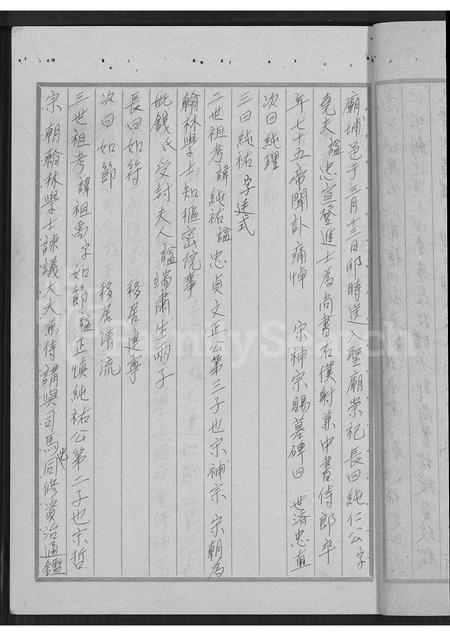 廟埔邑于三月十三日卯時送入聖廟崇祀長曰純仁公字
堯夫諡忠宣登進士為尚書右僕射兼中書侍郎卒
年七十五帝聞訃痛悼 宋神宗賜墓碑曰 世濟忠直
次曰純理
三曰純祐字逹式
二世祖考諱純祐諡忠貞文正公第三子也宋神宗 宗朝為
翰林學士知樞密院事
妣錢氏受封夫人諡端肅生两子
長曰如符 移居建寧
次曰如節 移居清流
三世祖考諱祖禹字如節諡正慎純祐公第二子也宋哲
宗 朝翰林學士諫議大夫兼侍講與司馬光同修資治通鑑
FamilySearch